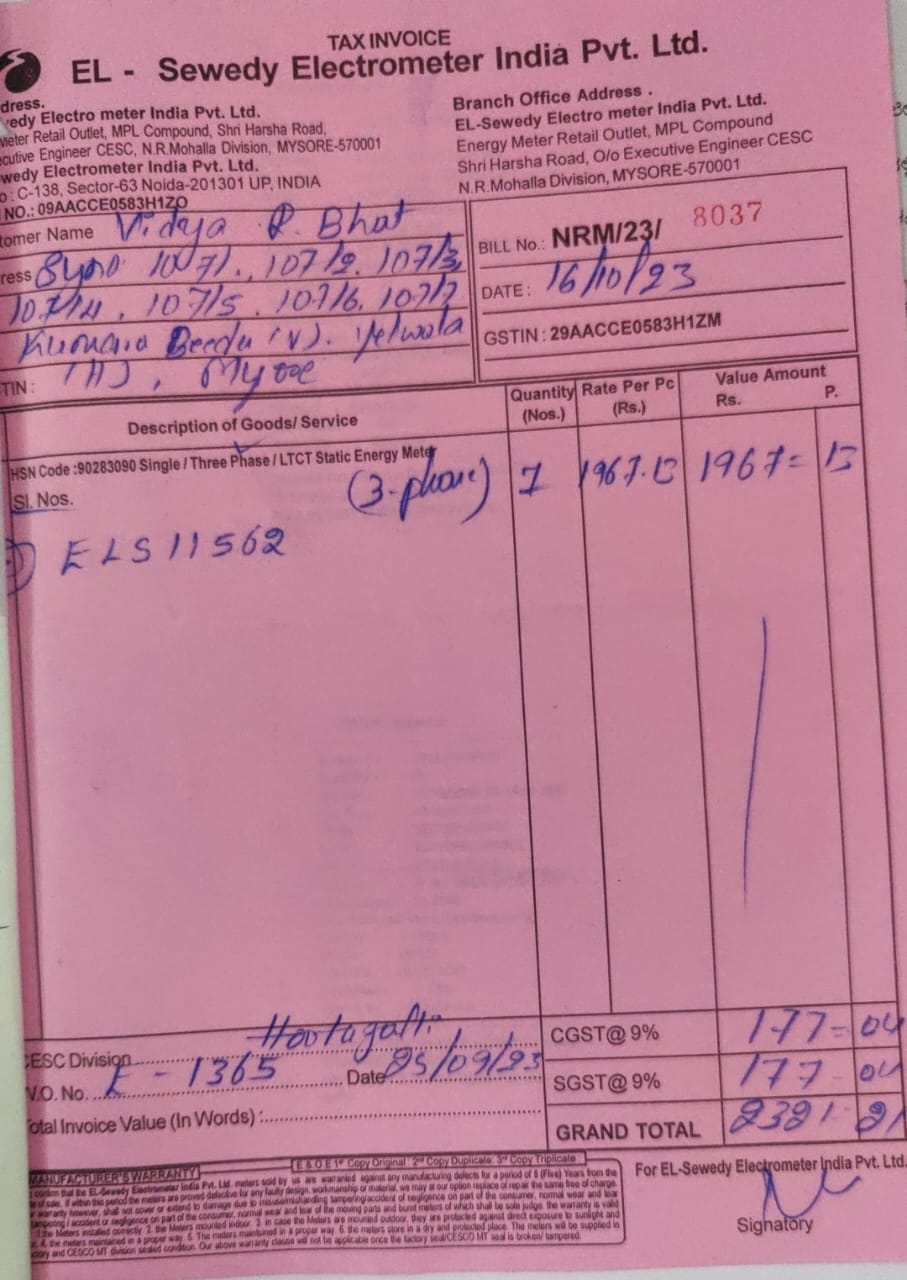 TAX INVOICE
EL - Sewedy Electrometer India Pvt. Ltd.
dress.
wedy Electro meter India Pvt. Ltd.
meter Retail Outlet, MPL Compound, Shri Harsha Road,
cutive Engineer CESC, N.R.Mohalla Division, MYSORE-570001
wedy Electrometer India Pvt. Ltd.
o : C-138, Sector-63 Noida-201301 UP, INDIA
NO.: 09AACCE0583H1ZO
Branch Office Address .
EL-Sewedy Electro meter India Pvt. Ltd.
Energy Meter Retail Outlet, MPL Compound
Shri Harsha Road, O/o Executive Engineer CESC
N.R.Mohalla Division, MYSORE-570001
tomer Name Vidya R. Bhat
ress Syno 107/1, 107/2, 107/3,
107/4, 107/5, 107/6, 107/7
Kumara Beedu (V). Yelwala
TIN : (H), Mysore
BILL No.: NRM/23/ 8037
DATE : 16/10/23
GSTIN : 29AACCE0583H1ZM
Description of Goods/ Service
Quantity (Nos.)
Rate Per Pc (Rs.)
Value Amount
Rs. P.
HSN Code :90283090 Single / Three Phase / LTCT Static Energy Meter
Sl. Nos. (3-phase) 1 1967.13 1967= 13
1) ELS11562
ESC Division Hootagalli
V.O. No. E - 1365 Date 25/09/23
otal Invoice Value (In Words) :
CGST@ 9% 177= 04
SGST@ 9% 177 - 04
GRAND TOTAL 2321 - 21
E & O E 1st Copy Original : 2nd Copy Duplicate: 3rd Copy Triplicate
MANUFACTURER'S WARRANTY
confirm that the EL-Sewedy Electrometer India Pvt. Ltd. meters sold by us are warranted against any manufacturing defects for a period of 5 (Five) Years from the
For EL-Sewedy Electrometer India Pvt. Ltd.
Signatory